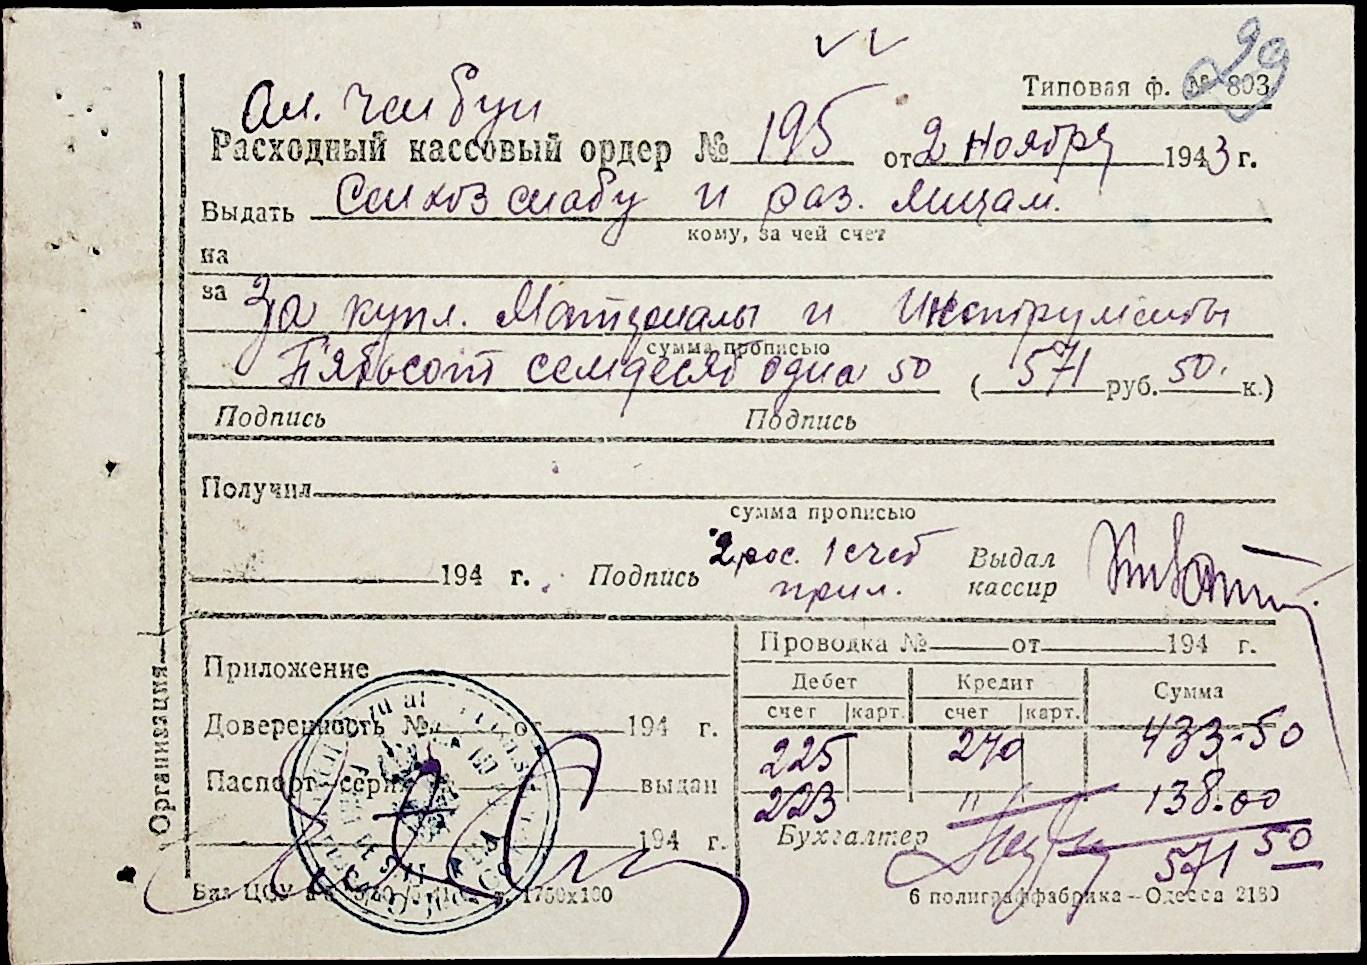 29
Типовая ф. № 803
Расходный кассовый ордер № 195 от 2 ноября 1943 г.
Выдать и раз. лицам.
кому, за чей счет
на
за За купл. Материалы и Инструменты
сумма прописью
Пятьсот семдесят одна 50 (571 руб. 50. к.)
Подпись Подпись
Получил
сумма прописью
194 г. Подпись 2 рос. 1 счет прил. Выдал кассир
Организация
Приложение
Доверенность № от 194 г.
Паспорт серия выдан
194 г.
Проводка № от 194 г.
Дебет Кредит Сумма
счет карт. счет карт.
225 270 433-50
223 " 138-00
Бухгалтер
571 50
1750х100
6 полиграффабрика – Одесса 2180